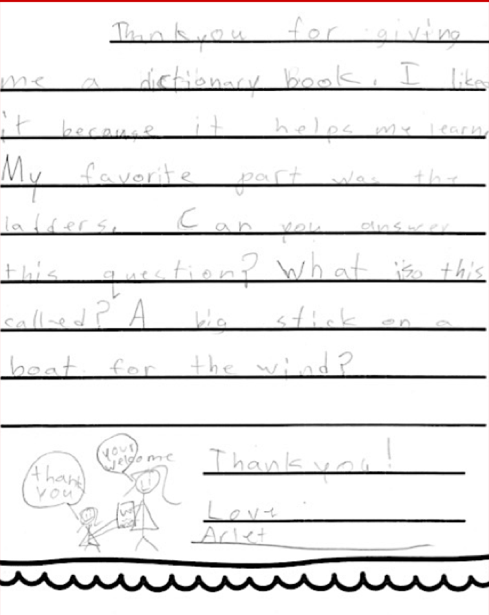 Thnkyou for giving
me a dictionary book. I like
it because it helps me learn
My favorite part was the
ladders. Can you answer
this question? What is this
called? A big stick on a
boat for the wind?
your
welcome
thank
you
Thank you!
Love
Arlet